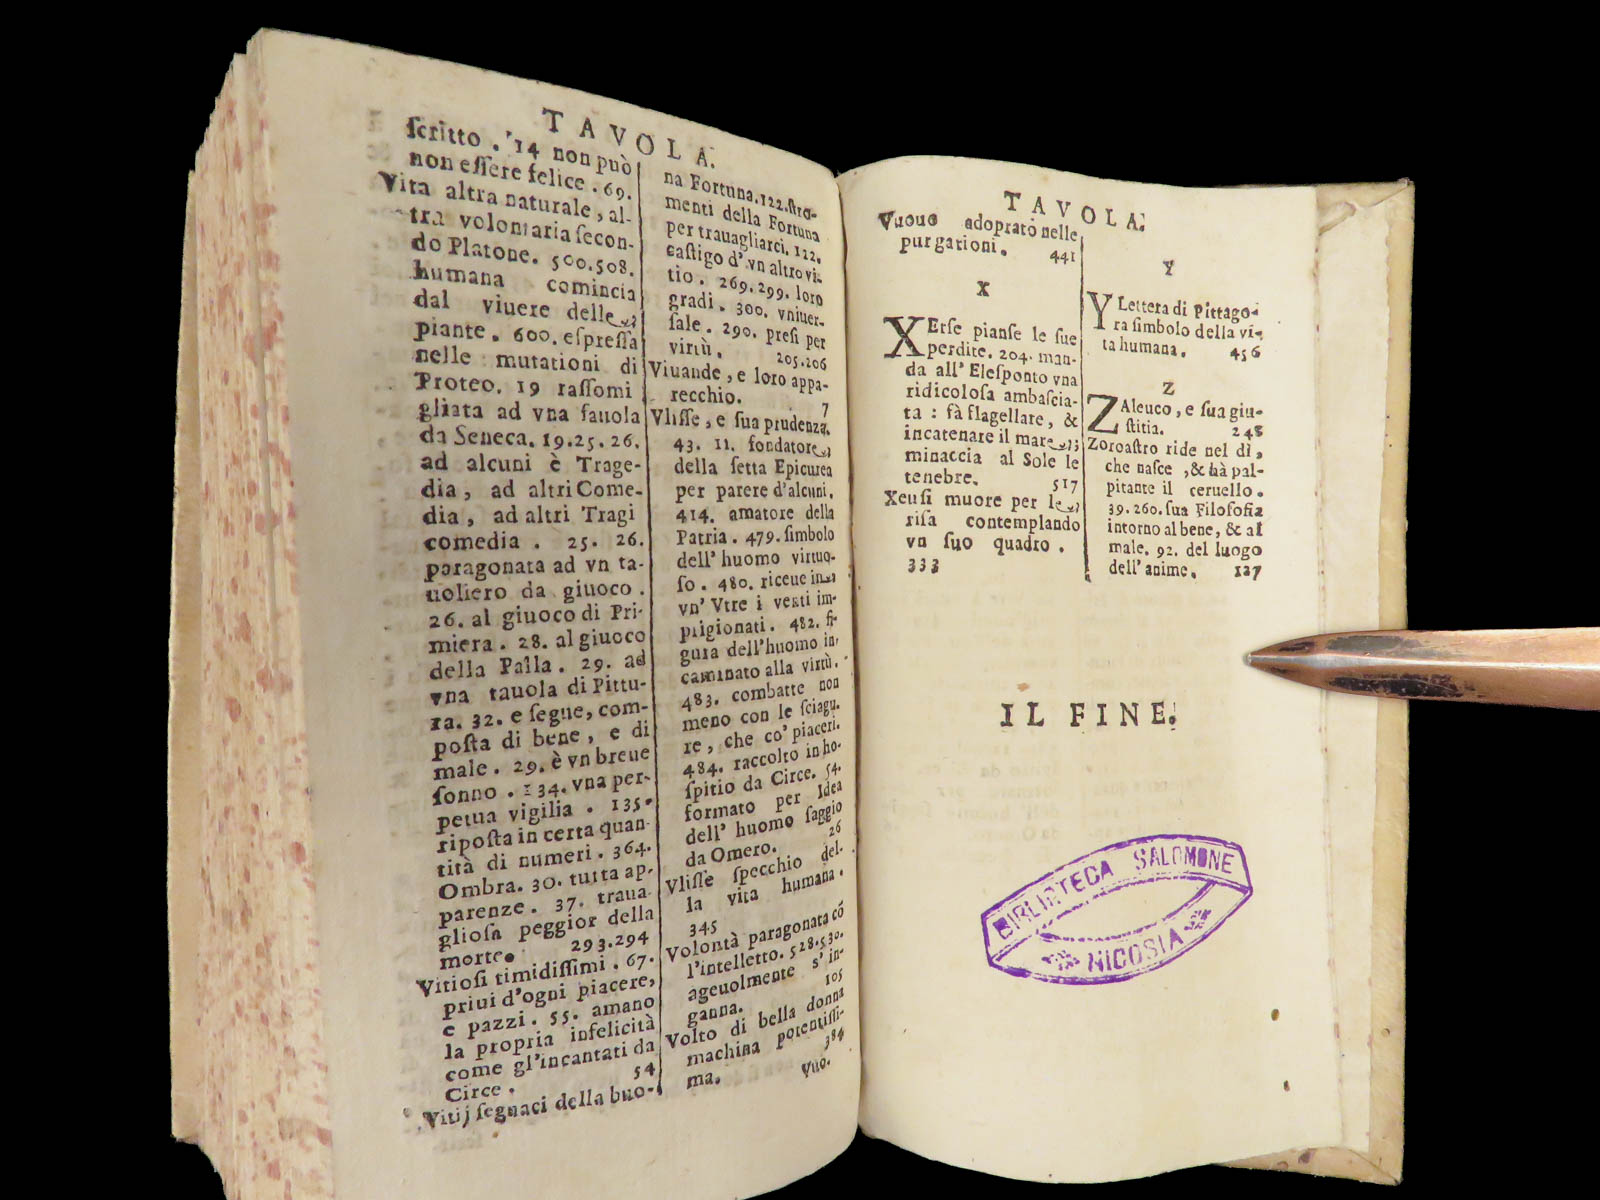 TAVOLA.
ſcritto . 14 non può
non eſſere felice . 69.
Vita altra naturale, al-
tra volontaria ſecon-
do Platone. 500.508.
humana comincia
dal viuere delle
piante. 600. eſpreſſa
nelle mutationi di
Proteo. 19 raſſomi
gliata ad vna fauola
da Seneca. 19.25.26.
ad alcuni è Trage-
dia, ad altri Come-
dia, ad altri Tragi
comedia . 25. 26.
paragonata ad vn ta-
uoliero da giuoco .
26. al giuoco di Pri-
miera . 28. al giuoco
della Palla . 29. ad
vna tauola di Pittu-
ra. 32. e ſegue, com-
poſta di bene, e di
male . 29. è vn breue
ſonno . 134. vna per-
petua vigilia . 135.
ripoſta in certa quan-
tità di numeri . 364.
Ombra. 30. tutta ap-
parenze . 37. traua-
glioſa peggior della
morte. 293.294
Vitioſi timidiſſimi . 67.
priui d'ogni piacere,
e pazzi . 55. amano
la propria infelicità
come gl'incantati da
Circe . 54
Vitij ſegnaci della buo-
na Fortuna. 122. ſtro-
menti della Fortuna
per trauagliarci. 122.
caſtigo d'vn altro vi-
tio . 269.299. loro
gradi . 300. vniuer-
ſale . 290. preſi per
virtù. 205.206
Viuande, e loro appa-
recchio. 7
Vliſſe, e ſua prudenza.
43. 11. fondatore
della ſetta Epicurea
per parere d'alcuni.
414. amatore della
Patria . 479. ſimbolo
dell'huomo virtuo-
ſo . 480. riceue in
vn' Vtre i venti im-
prigionati. 482. fi-
gura dell'huomo in-
caminato alla virtù.
483. combatte non
meno con le ſciagu-
re, che co' piaceri.
484. raccolto in ho-
ſpitio da Circe. 54.
formato per Idea
dell' huomo ſaggio
da Omero. 26
Vliſſe ſpecchio del-
la vita humana .
345
Volontà paragonata cō
l'intelletto. 528.530.
ageuolmente s'in-
ganna. 105
Volto di bella donna
machina potentiſſi-
ma. 384
Vuo.
TAVOLA.
Vuouo adoprato nelle
purgationi. 441
X
XErſe pianſe le ſue
perdite. 204. man-
da all'Eleſponto vna
ridicoloſa ambaſcia-
ta : fà flagellare, &
incatenare il mare;
minaccia al Sole le
tenebre. 517
Xeuſi muore per le
riſa contemplando
vn ſuo quadro .
333
Y
Y Lettera di Pittago-
ra ſimbolo della vi-
ta humana. 456
Z
ZAleuco, e ſua giu-
ſtitia. 248
Zoroaſtro ride nel dì,
che naſce, & hà pal-
pitante il ceruello.
39.260. ſua Filoſofia
intorno al bene, & al
male. 92. del luogo
dell'anime. 127
IL FINE.
BIBLIOTECA SALOMONE
NICOSIA